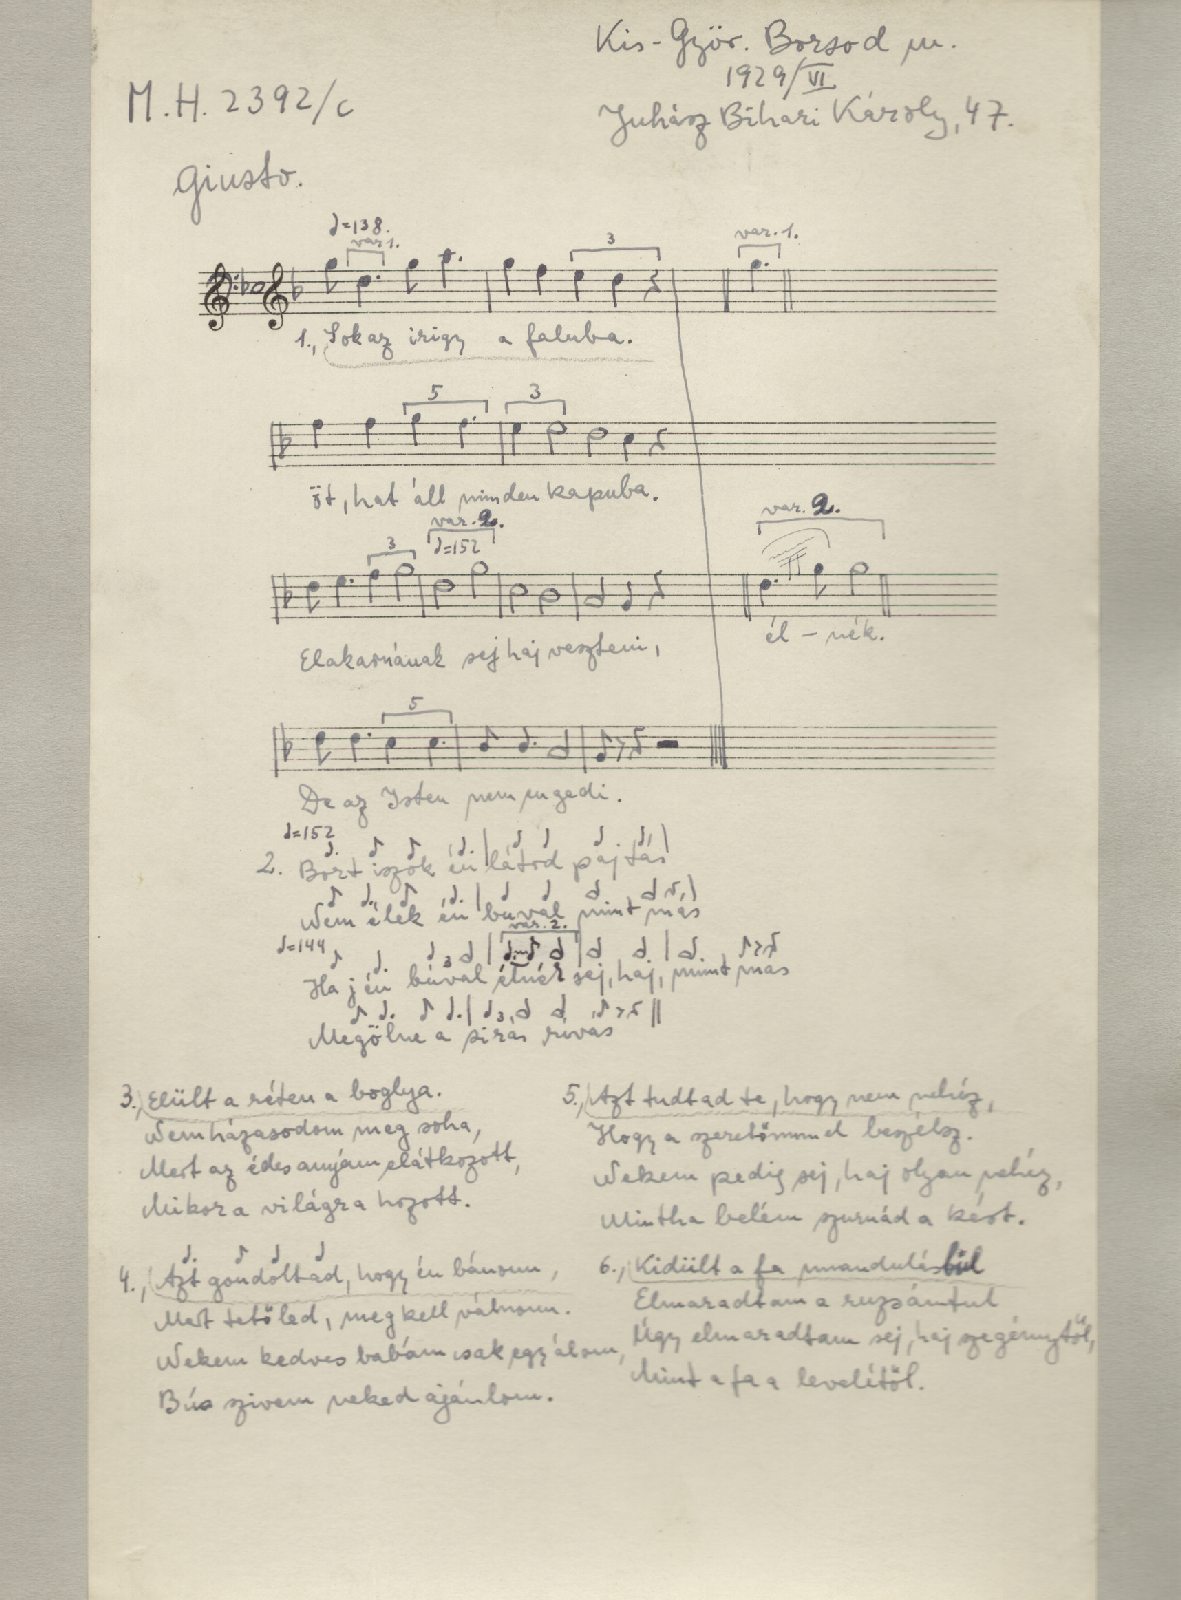 Kis-Győr. Borsod m.
1929/VI
M.H. 2392/c
Juhász Bihari Károly, 47.
Giusto.
♩=138.
var 1.
3
var. 1.
1., Sok az irigy a faluba.
5
3
öt, hat áll minden kapuba.
var. 2.
3
♩=152
var. 2.
Elakarnának sej haj veszteni,
él - nék.
5
De az Isten nem engedi.
♩=152
2. Bort iszok én látod pajtás
Nem élek én buval mint más
var. 2.
♩=144
3
Ha j én búval élnék sej, haj, mint más
3
Megölne a sirás rívás
3., Elült a réten a boglya.
Nem házasodom meg soha,
Mert az édes anyám elátkozott,
Mikor a világra hozott.
4., Azt gondoltad, hogy én bánom,
Mert tetőled, meg kell válnom.
Nekem kedves babám csak egy álom,
Bús szivem neked ajánlom.
5., Azt tudtad te, hogy nem nehéz,
Hogy a szeretőmmel beszélsz.
Nekem pedig sej, haj olyan nehéz,
Mintha belém szurnád a kést.
6., Kidült a fa mandulásbúl
Elmaradtam a ruzsámtul
Úgy elmaradtam sej, haj szegénytől,
Mint a fa a levelétől.